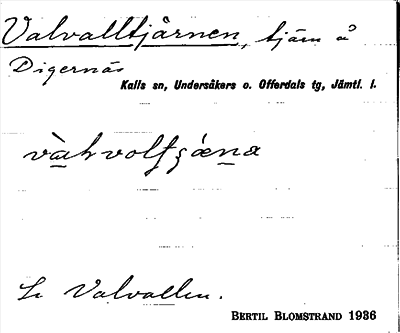 Valvalltjärnen, tjärn å
Digernäs
Kalls sn, Undersåkers o. Offerdals tg, Jämtl. l.
Se Valvallen.
BERTIL BLOMSTRAND 1936